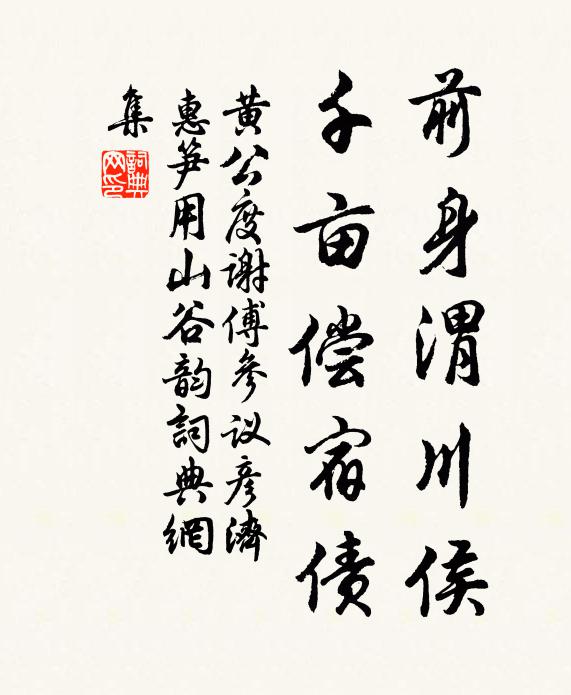 前身渭川侯
千亩偿宿债
黄公度谢傅參议彦濟
惠笋用山谷韵詞典網
集
詞典网印